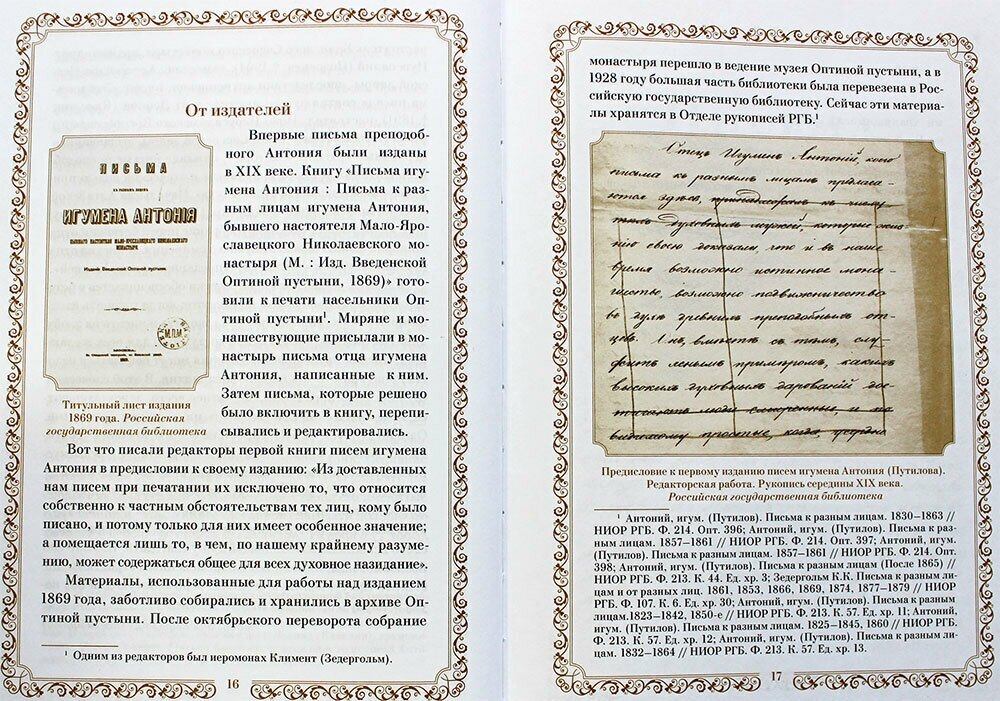 От издателей
ПИСЬМА
КЪ РАЗНЫМЪ ЛИЦАМЪ
ИГУМЕНА АНТОНІЯ
БЫВШАГО НАСТОЯТЕЛЯ МАЛО-ЯРОСЛАВЕЦКАГО НИКОЛАЕВСКАГО
МОНАСТЫРЯ.
Изданіе Введенской Оптиной пустыни.
МОСКВА.
1869.
Титульный лист издания
1869 года. Российская
государственная библиотека
Впервые письма преподоб-
ного Антония были изданы
в XIX веке. Книгу «Письма игу-
мена Антония : Письма к раз-
ным лицам игумена Антония,
бывшего настоятеля Мало-Яро-
славецкого Николаевского мо-
настыря (М. : Изд. Введенской
Оптиной пустыни, 1869)» гото-
вили к печати насельники Оп-
тиной пустыни¹. Миряне и мо-
нашествующие присылали в мо-
настырь письма отца игумена
Антония, написанные к ним.
Затем письма, которые решено
было включить в книгу, перепи-
сывались и редактировались.
Вот что писали редакторы первой книги писем игумена
Антония в предисловии к своему изданию: «Из доставленных
нам писем при печатании их исключено то, что относится
собственно к частным обстоятельствам тех лиц, кому было
писано, и потому только для них имеет особенное значение;
а помещается лишь то, в чем, по нашему крайнему разуме-
нию, может содержаться общее для всех духовное назидание».
Материалы, использованные для работы над изданием
1869 года, заботливо собирались и хранились в архиве Оп-
тиной пустыни. После октябрьского переворота собрание
¹ Одним из редакторов был иеромонах Климент (Зедергольм).
16
монастыря перешло в ведение музея Оптиной пустыни, а в
1928 году большая часть библиотеки была перевезена в Рос-
сийскую государственную библиотеку. Сейчас эти материа-
лы хранятся в Отделе рукописей РГБ.¹
Отецъ Игуменъ Антоній, коего
письма къ разнымъ лицамъ предлага-
ются здѣсь, принадлежалъ къ числу
духовныхъ мужей, которые жиз-
нію своею доказали, что и въ наше
время возможно истинное мона-
шество, возможно подвижничество
въ духѣ древнихъ преподобныхъ от-
цевъ. Онъ, вмѣстѣ съ тѣмъ, слу-
жить яснымъ примѣромъ, какихъ
высокихъ духовныхъ дарованій дос-
тигаютъ люди смиренные, и по
видимому простые, когда усердно
Предисловие к первому изданию писем игумена Антония (Путилова).
Редакторская работа. Рукопись середины XIX века.
Российская государственная библиотека
¹ Антоний, игум. (Путилов). Письма к разным лицам. 1830–1863 //
НИОР РГБ. Ф. 214. Опт. 396; Антоний, игум. (Путилов). Письма к раз-
ным лицам. 1857–1861 // НИОР РГБ. Ф. 214. Опт. 397; Антоний, игум.
(Путилов). Письма к разным лицам. 1857–1861 // НИОР РГБ. Ф. 214. Опт.
398; Антоний, игум. (Путилов). Письма к разным лицам (После 1865) //
НИОР РГБ. Ф. 213. К. 44. Ед. хр. 3; Зедергольм К.К. Письма к разным ли-
цам и от разных лиц. 1861, 1853, 1866, 1869, 1874, 1877–1879 // НИОР
РГБ. Ф. 107. К. 6. Ед. хр. 30; Антоний, игум. (Путилов). Письма к разным
лицам.1823–1842, 1850-е // НИОР РГБ. Ф. 213. К. 57. Ед. хр. 11; Антоний,
игум. (Путилов). Письма к разным лицам. 1825–1845, 1860 // НИОР РГБ.
Ф. 213. К. 57. Ед. хр. 12; Антоний, игум. (Путилов). Письма к разным ли-
цам. 1832–1864 // НИОР РГБ. Ф. 213. К. 57. Ед. хр. 13.
17